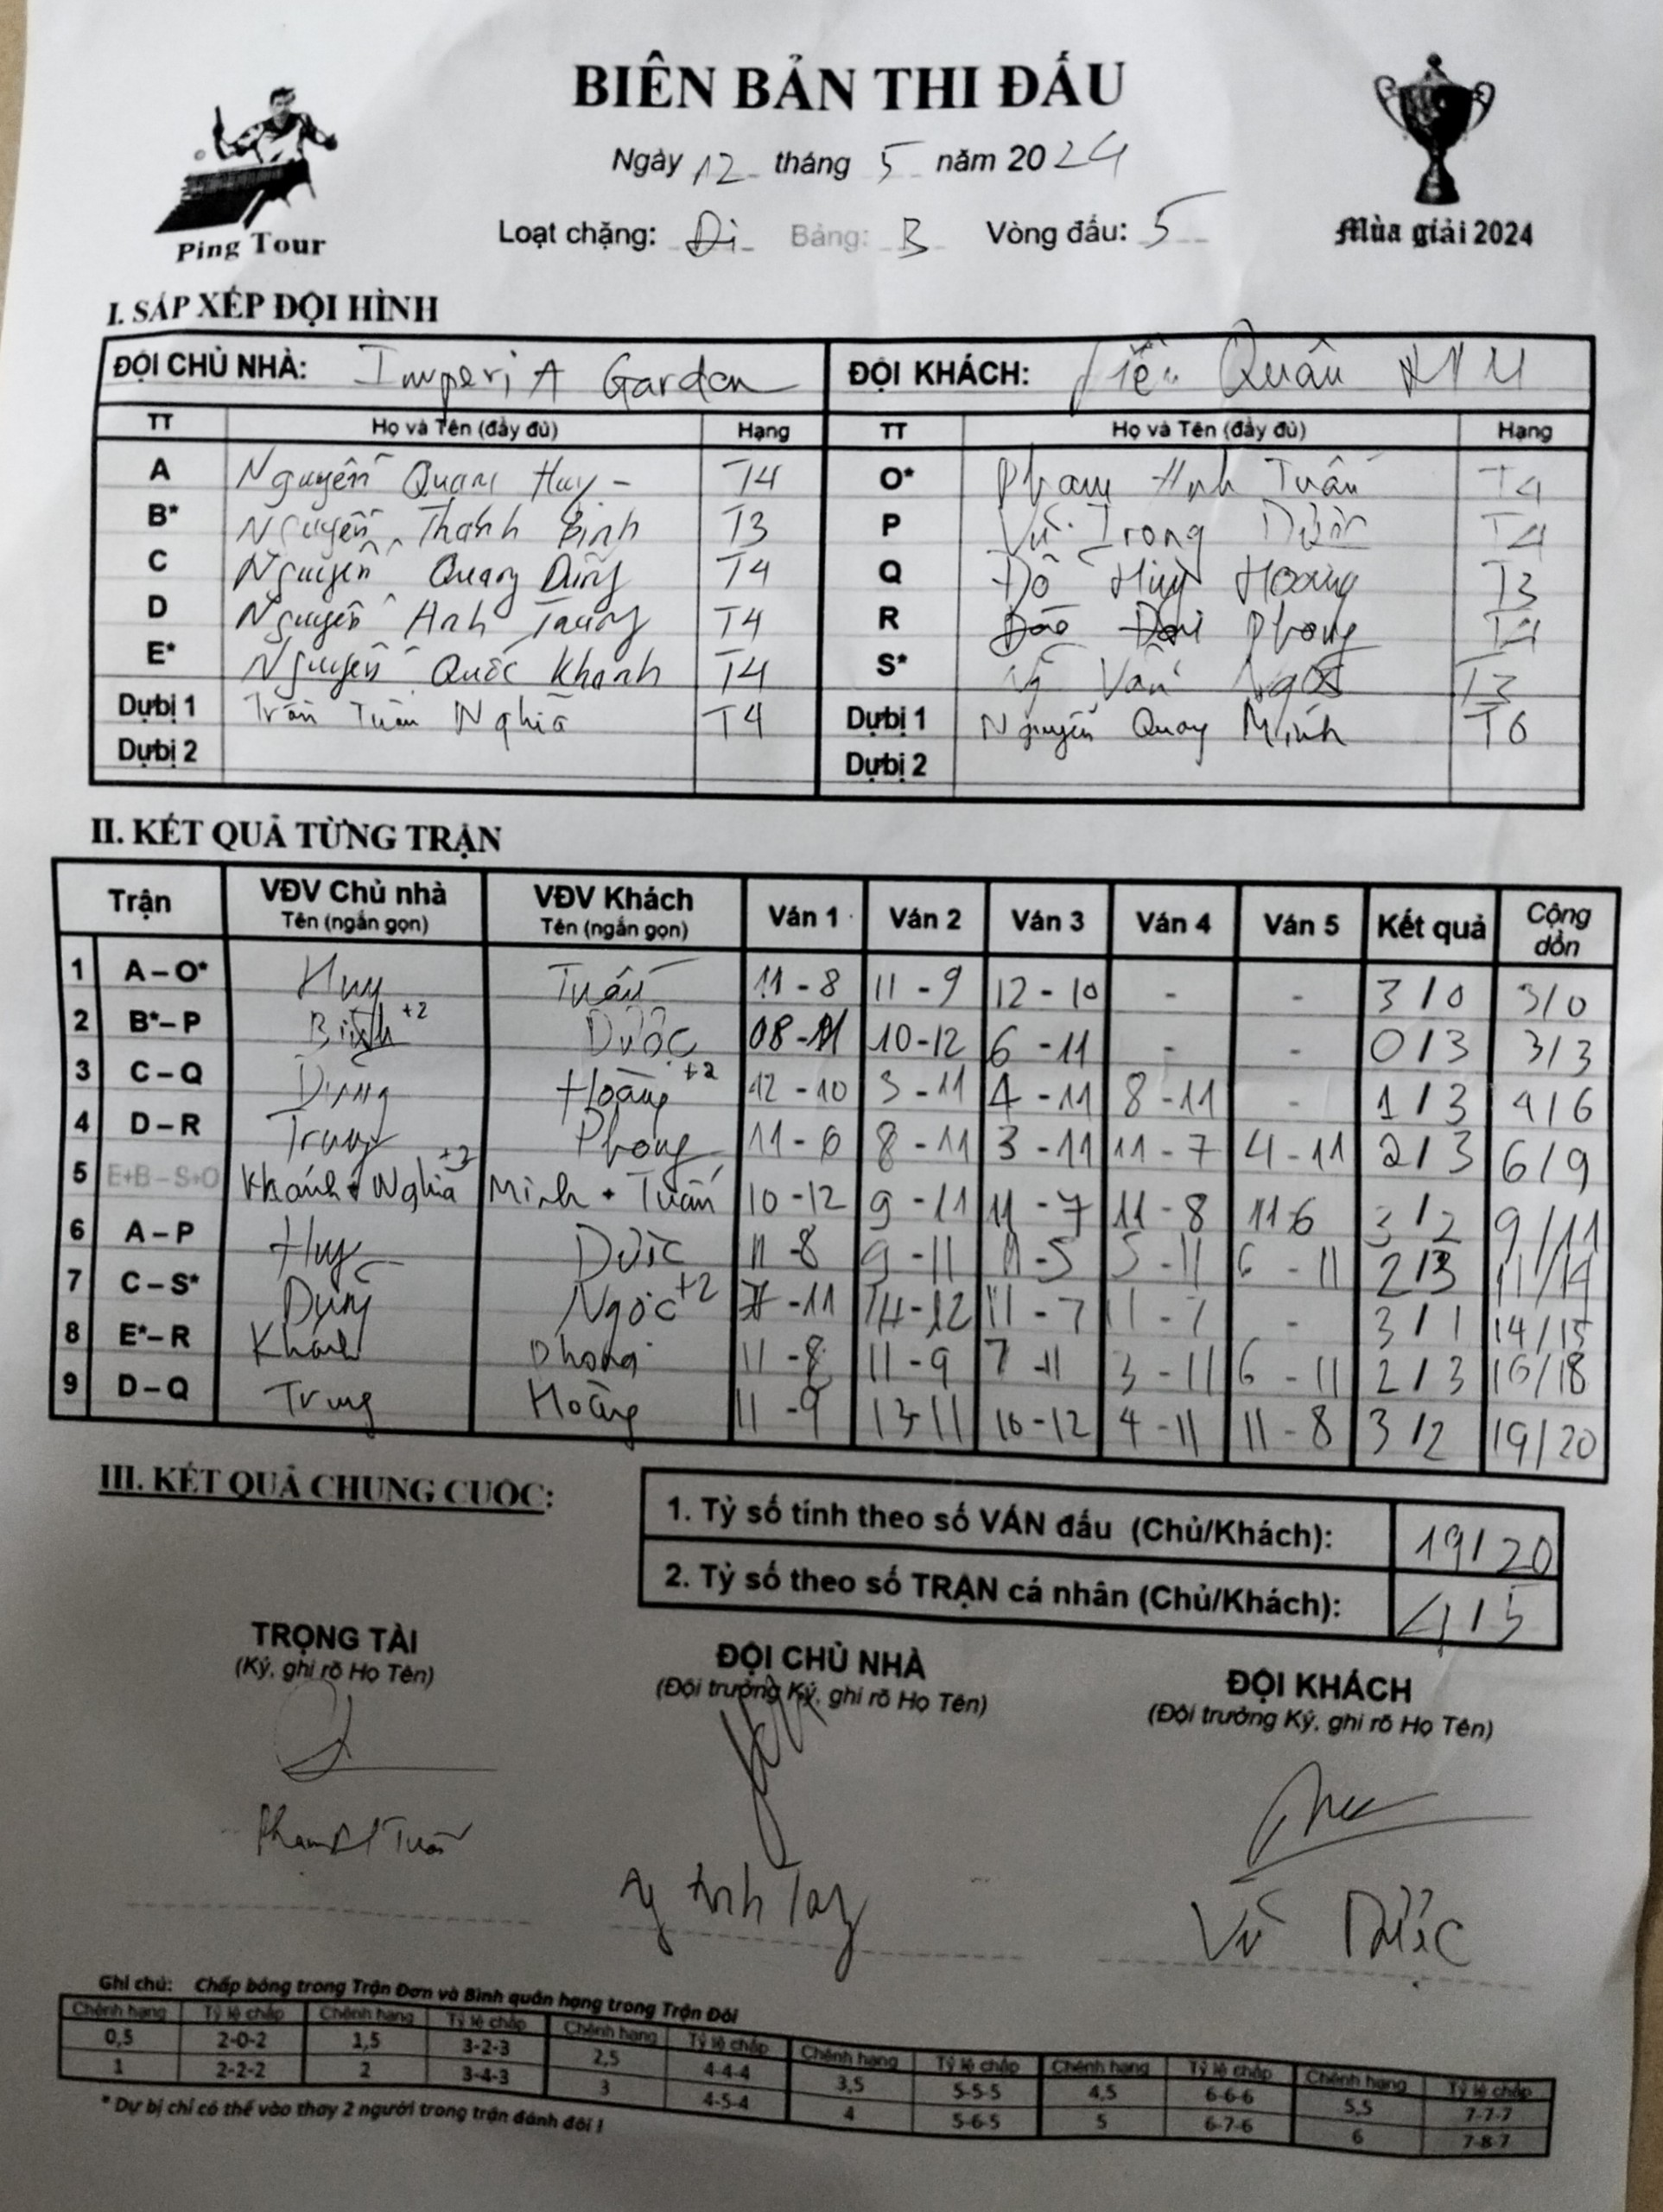 BIÊN BẢN THI ĐẤU
Ngày 12 tháng 5 năm 2024
Ping Tour
Loạt chặng: Đi Bảng: B Vòng đấu: 5
Mùa giải 2024
I. SẮP XẾP ĐỘI HÌNH
ĐỘI CHỦ NHÀ: Imperi A Garden ĐỘI KHÁCH: Quân
TT Họ và Tên (đầy đủ) Hạng TT Họ và Tên (đầy đủ) Hạng
A Nguyễn Quang Huy - T4 O* Phạm Anh Tuấn T4
B* Nguyễn Thanh Bình T3 P Vũ Trọng Dược T4
C Nguyễn Quang Dũng T4 Q Đỗ Huy Hoàng T3
D Nguyễn Anh Trung T4 R Đào Phong T4
E* Nguyễn Quốc Khánh T4 S* Văn Ngọc T3
Dự bị 1 Trần Tuấn Nghĩa T4 Dự bị 1 Nguyễn Quang Minh T6
Dự bị 2 Dự bị 2
II. KẾT QUẢ TỪNG TRẬN
Trận VĐV Chủ nhà Tên (ngắn gọn) VĐV Khách Tên (ngắn gọn) Ván 1 Ván 2 Ván 3 Ván 4 Ván 5 Kết quả Cộng dồn
1 A – O* Huy Tuấn 11 - 8 11 - 9 12 - 10 - - 3 / 0 3/0
2 B* – P Bình +2 Dược 08 - 11 10 - 12 6 - 11 - - 0 / 3 3/3
3 C – Q Dũng Hoàng +2 12 - 10 3 - 11 4 - 11 8 - 11 - 1 / 3 4/6
4 D – R Trung Phong 11 - 6 8 - 11 3 - 11 11 - 7 4 - 11 2 / 3 6/9
5 E+B – S+O Khánh + Nghĩa Minh + Tuấn 10 - 12 9 - 11 11 - 7 11 - 8 11 6 3 / 2 9/11
6 A – P Huy Dược 11 - 8 9 - 11 11 - 5 5 - 11 6 - 11 2 / 3 11/14
7 C – S* Dũng Ngọc +2 7 - 11 14 - 12 11 - 7 11 - 7 - 3 / 1 14/15
8 E* – R Khánh Phong 11 - 8 11 - 9 7 - 11 3 - 11 6 - 11 2 / 3 16/18
9 D – Q Trung Hoàng 11 - 9 13 - 11 10 - 12 4 - 11 11 - 8 3 / 2 19/20
III. KẾT QUẢ CHUNG CUỘC:
1. Tỷ số tính theo số VÁN đấu (Chủ/Khách): 19/20
2. Tỷ số theo số TRẬN cá nhân (Chủ/Khách): 4/5
TRỌNG TÀI ĐỘI CHỦ NHÀ ĐỘI KHÁCH
(Ký, ghi rõ Họ Tên) (Đội trưởng Ký, ghi rõ Họ Tên) (Đội trưởng Ký, ghi rõ Họ Tên)
Vũ Dược
Ghi chú: Chấp bóng trong Trận Đơn và Bình quân hạng trong Trận Đôi
Chênh hạng Tỷ lệ chấp Chênh hạng Tỷ lệ chấp Chênh hạng Tỷ lệ chấp Chênh hạng Tỷ lệ chấp Chênh hạng Tỷ lệ chấp Chênh hạng Tỷ lệ chấp
0,5 2-0-2 1,5 3-2-3 2,5 4-4-4 3,5 5-5-5 4,5 6-6-6 5,5 7-7-7
1 2-2-2 2 3-4-3 3 4-5-4 4 5-6-5 5 6-7-6 6 7-8-7
* Dự bị chỉ có thể vào thay 2 người trong trận đánh đôi !